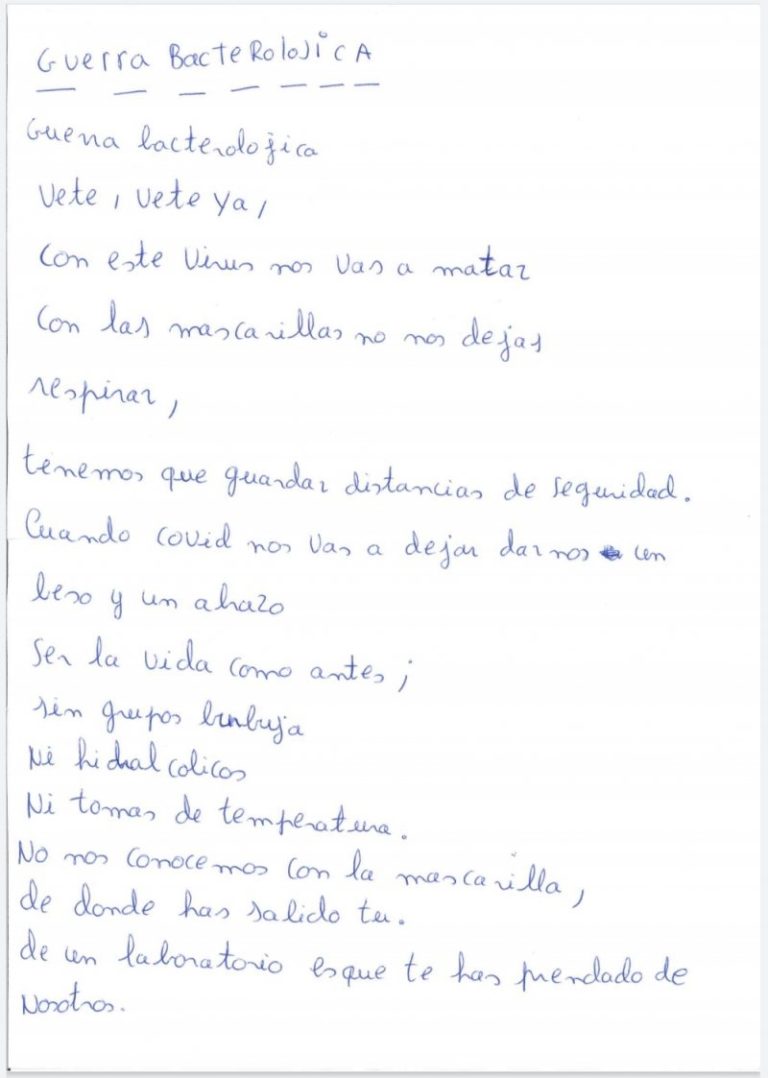 Guerra BacteRoloJicA
Guerra bacterolojica
Vete, vete ya,
Con este Virus nos Vas a matar
Con las mascarillas no nos dejas
respirar,
tenemos que guardar distancias de seguridad.
Cuando covid nos Vas a dejar darnos un
beso y un abazo
Ser la vida como antes;
sin grupos burbuja
Ni hidralcolicos
Ni tomas de temperatura.
No nos conocemos con la mascarilla,
de donde has salido tu.
de un laboratorio esque te has prendado de
Nosotros.